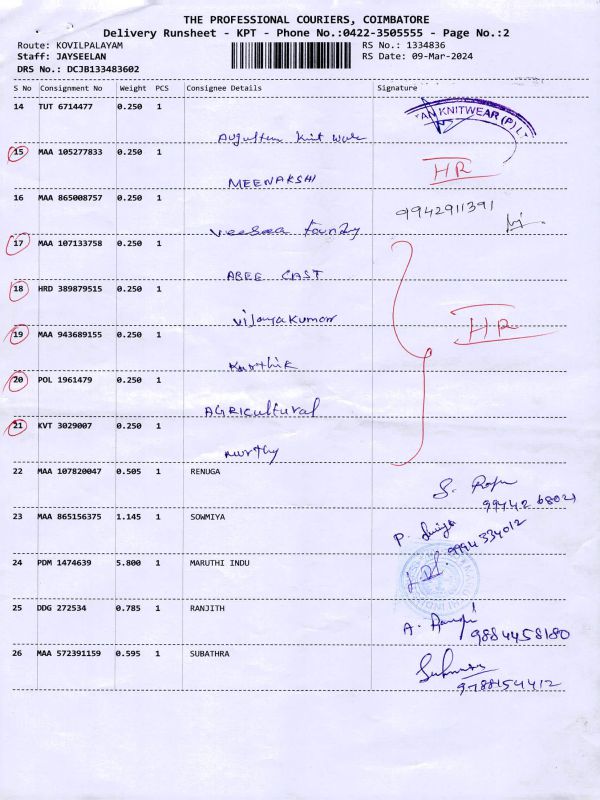 THE PROFESSIONAL COURIERS, COIMBATORE
Delivery Runsheet - KPT - Phone No.:0422-3505555 - Page No.:2
Route: KOVILPALAYAM RS No.: 1334836
Staff: JAYSEELAN RS Date: 09-Mar-2024
DRS No.: DCJB133483602
S No Consignment No Weight PCS Consignee Details Signature
14 TUT 6714477 0.250 1
KNITWEAR (P) L
Knit
15 MAA 105277833 0.250 1
HR
MEENAKSHI
16 MAA 865008757 0.250 1
9942911391
Veesaa foundy
17 MAA 107133758 0.250 1
ABEE CAST
18 HRD 389879515 0.250 1
Vijayakumar
HR
19 MAA 943689155 0.250 1
Karthik
20 POL 1961479 0.250 1
AGRICultural
21 KVT 3029007 0.250 1
Murthy
22 MAA 107820047 0.505 1 RENUGA
99742 68021
23 MAA 865156375 1.145 1 SOWMIYA
9994334012
24 PDM 1474639 5.800 1 MARUTHI INDU
25 DDG 272534 0.785 1 RANJITH
9884458180
26 MAA 572391159 0.595 1 SUBATHRA
9788154412